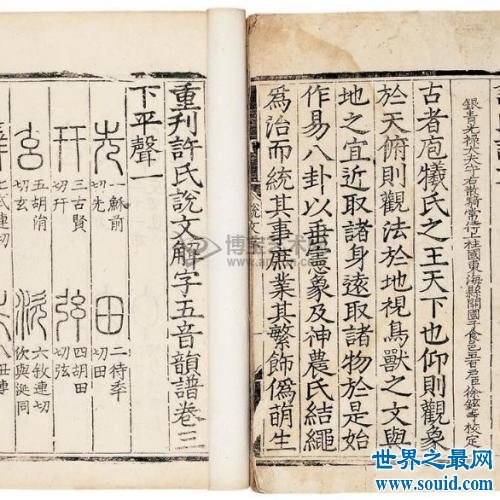 銀青光祿大夫守右散騎常侍上柱國東海縣開國子食邑五百戶臣徐鉉等校定
古者庖犧氏之王天下也仰則觀象
於天俯則觀法於地視鳥獸之文與
地之宜近取諸身遠取諸物於是始
作易八卦以垂憲象及神農氏結繩
為治而統其事庶業其繁飾偽萌生
說文
重刊許氏說文解字五音韻譜卷三
下平聲一
先 一蘇前切先 田 二待季切田
幵 三古賢切幵 弦 四胡田切弦
玄 五胡涓切玄 㳄 六敘連切㳄與涎同
世界之最网
www.souid.com